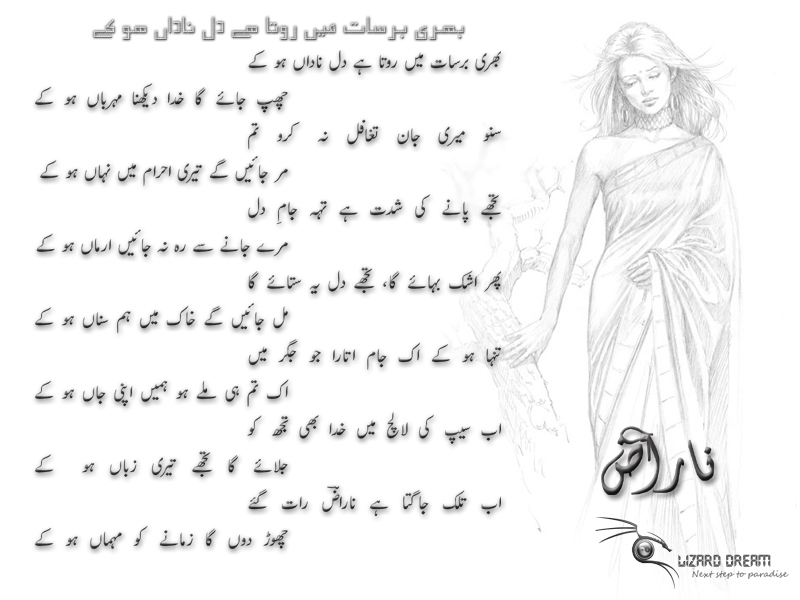 بھری برسات میں روتا ہے دل ناداں ہو کے
بھری برسات میں روتا ہے دل ناداں ہو کے
چھپ جائے گا خدا دیکھنا مہرباں ہو کے
سنو میری جان تغافل نہ کرو تم
مر جائیں گے تیری احرام میں نہاں ہو کے
تجھے پانے کی شدت ہے تہہ جامِ دل
مرے جانے سے رہ نہ جائیں ارماں ہو کے
پھر اشک بہائے گا، تجھے دل یہ ستائے گا
مل جائیں گے خاک میں ہم سناں ہو کے
تنہا ہو کے اک جام اتارا جو جگر میں
اک تم ہی ملے ہو ہمیں اپنی جاں ہو کے
اب سیپ کی لالچ میں خدا بھی تجھ کو
جلائے گا تجھے تیری زباں ہو کے
اب تلک جاگتا ہے ناراضؔ رات گئے
چھوڑ دوں گا زمانے کو مہماں ہو کے
ناراض
LIZARD DREAM
Next step to paradise